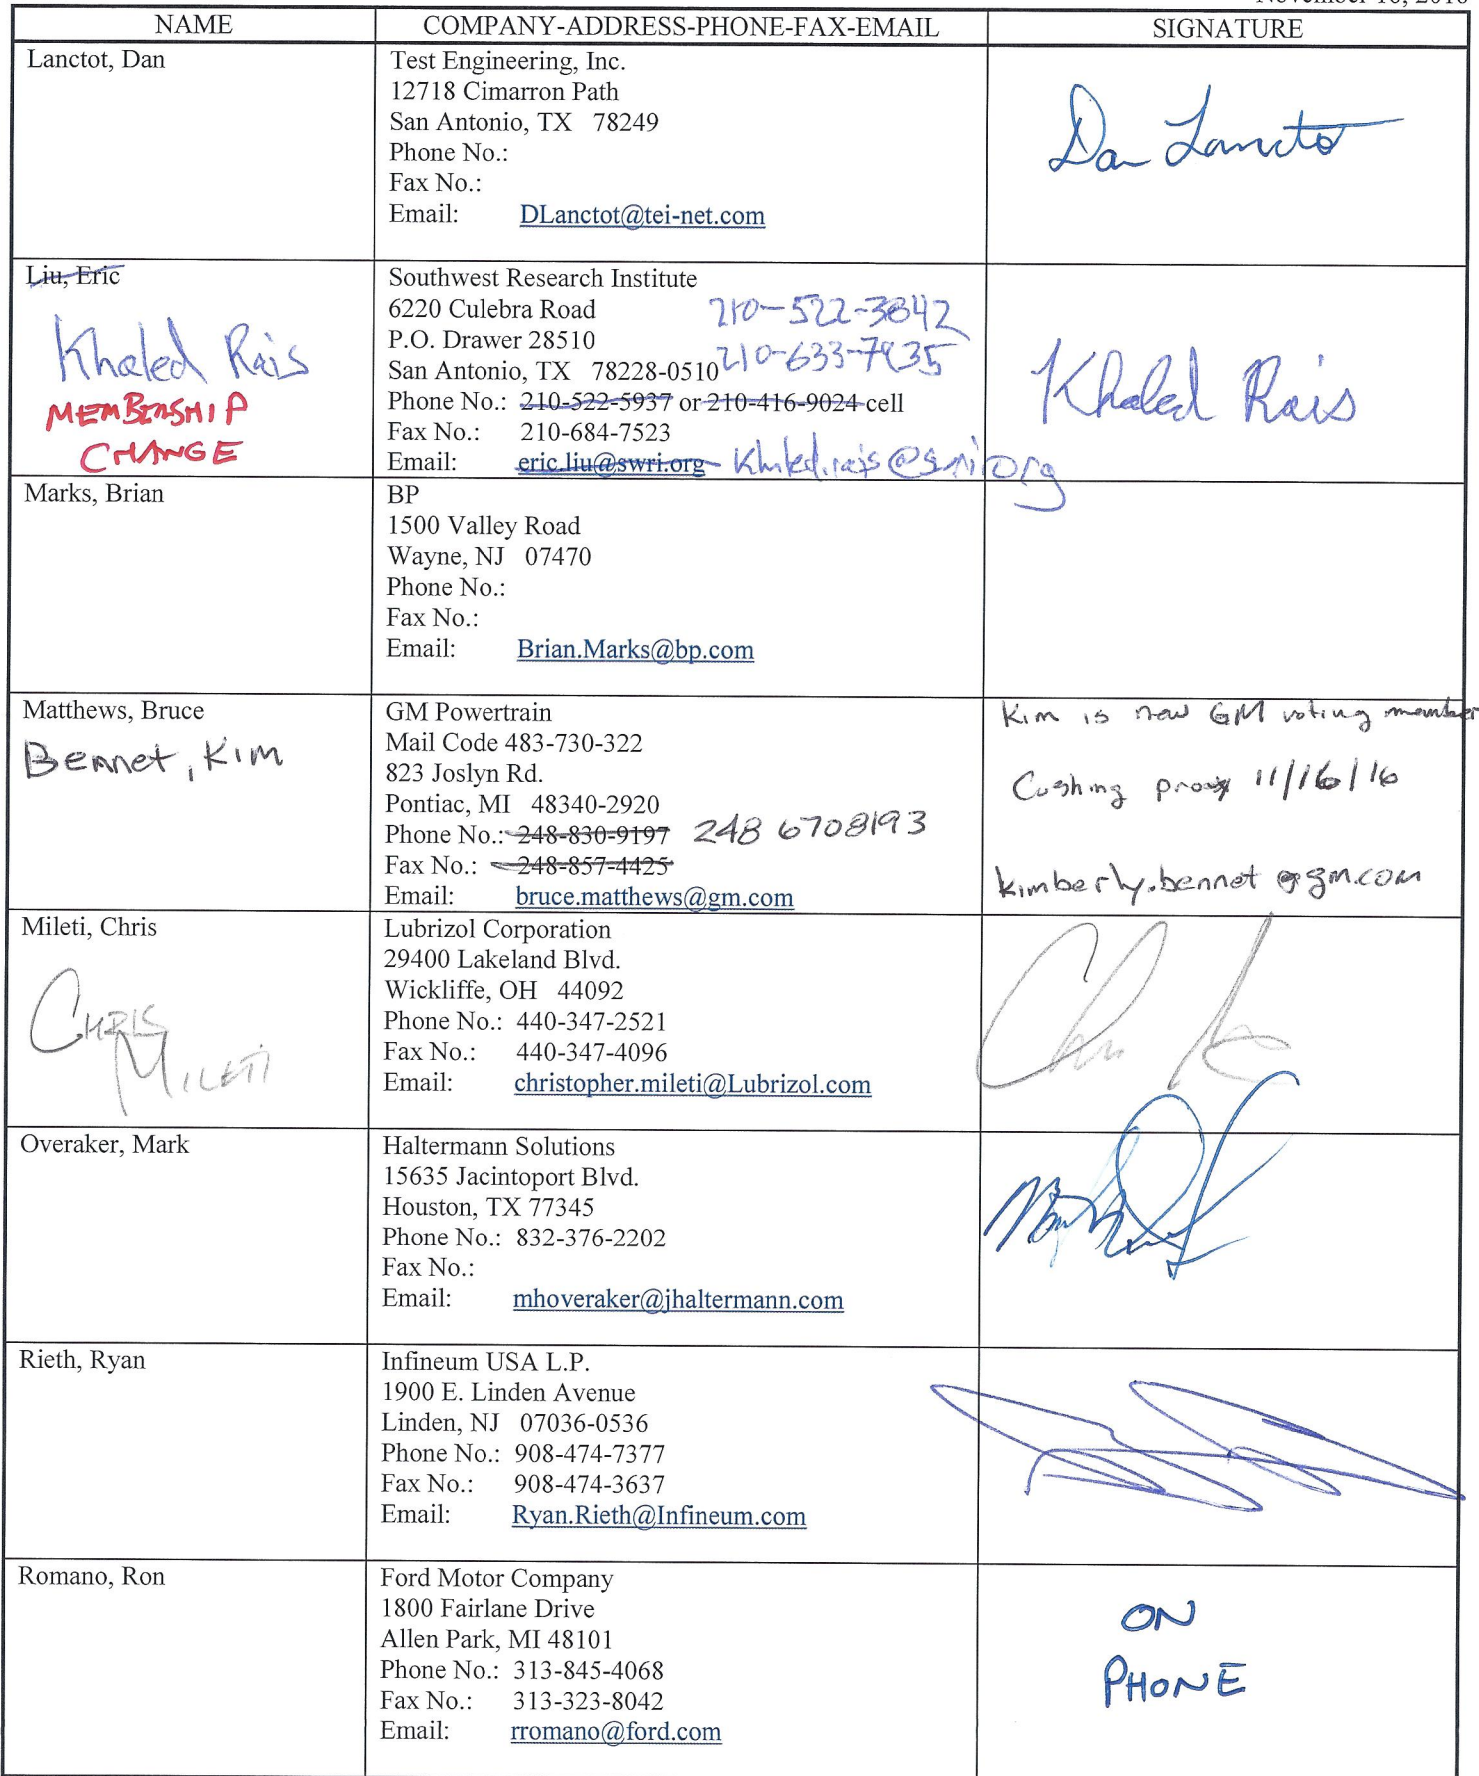 NAME COMPANY-ADDRESS-PHONE-FAX-EMAIL SIGNATURE
Lanctot, Dan
Test Engineering, Inc.
12718 Cimarron Path
San Antonio, TX 78249
Phone No.:
Fax No.:
Email: DLanctot@tei-net.com
Dan Lanctot
Liu, Eric
Khaled Rais
MEMBERSHIP
CHANGE
Southwest Research Institute
6220 Culebra Road 210-522-3842
P.O. Drawer 28510
San Antonio, TX 78228-0510 210-633-7935
Phone No.: 210-522-5937 or 210-416-9024 cell
Fax No.: 210-684-7523
Email: eric.liu@swri.org Khaled.rais@swri.org
Khaled Rais
Marks, Brian
BP
1500 Valley Road
Wayne, NJ 07470
Phone No.:
Fax No.:
Email: Brian.Marks@bp.com
Matthews, Bruce
Bennet, Kim
GM Powertrain
Mail Code 483-730-322
823 Joslyn Rd.
Pontiac, MI 48340-2920
Phone No.: 248-830-9197 248 6708193
Fax No.: 248-857-4425
Email: bruce.matthews@gm.com
Kim is new GM voting member
Cushing proxy 11/16/16
kimberly.bennet@gm.com
Mileti, Chris
CHRIS
MILETI
Lubrizol Corporation
29400 Lakeland Blvd.
Wickliffe, OH 44092
Phone No.: 440-347-2521
Fax No.: 440-347-4096
Email: christopher.mileti@Lubrizol.com
Overaker, Mark
Haltermann Solutions
15635 Jacintoport Blvd.
Houston, TX 77345
Phone No.: 832-376-2202
Fax No.:
Email: mhoveraker@jhaltermann.com
Rieth, Ryan
Infineum USA L.P.
1900 E. Linden Avenue
Linden, NJ 07036-0536
Phone No.: 908-474-7377
Fax No.: 908-474-3637
Email: Ryan.Rieth@Infineum.com
Romano, Ron
Ford Motor Company
1800 Fairlane Drive
Allen Park, MI 48101
Phone No.: 313-845-4068
Fax No.: 313-323-8042
Email: rromano@ford.com
ON
PHONE